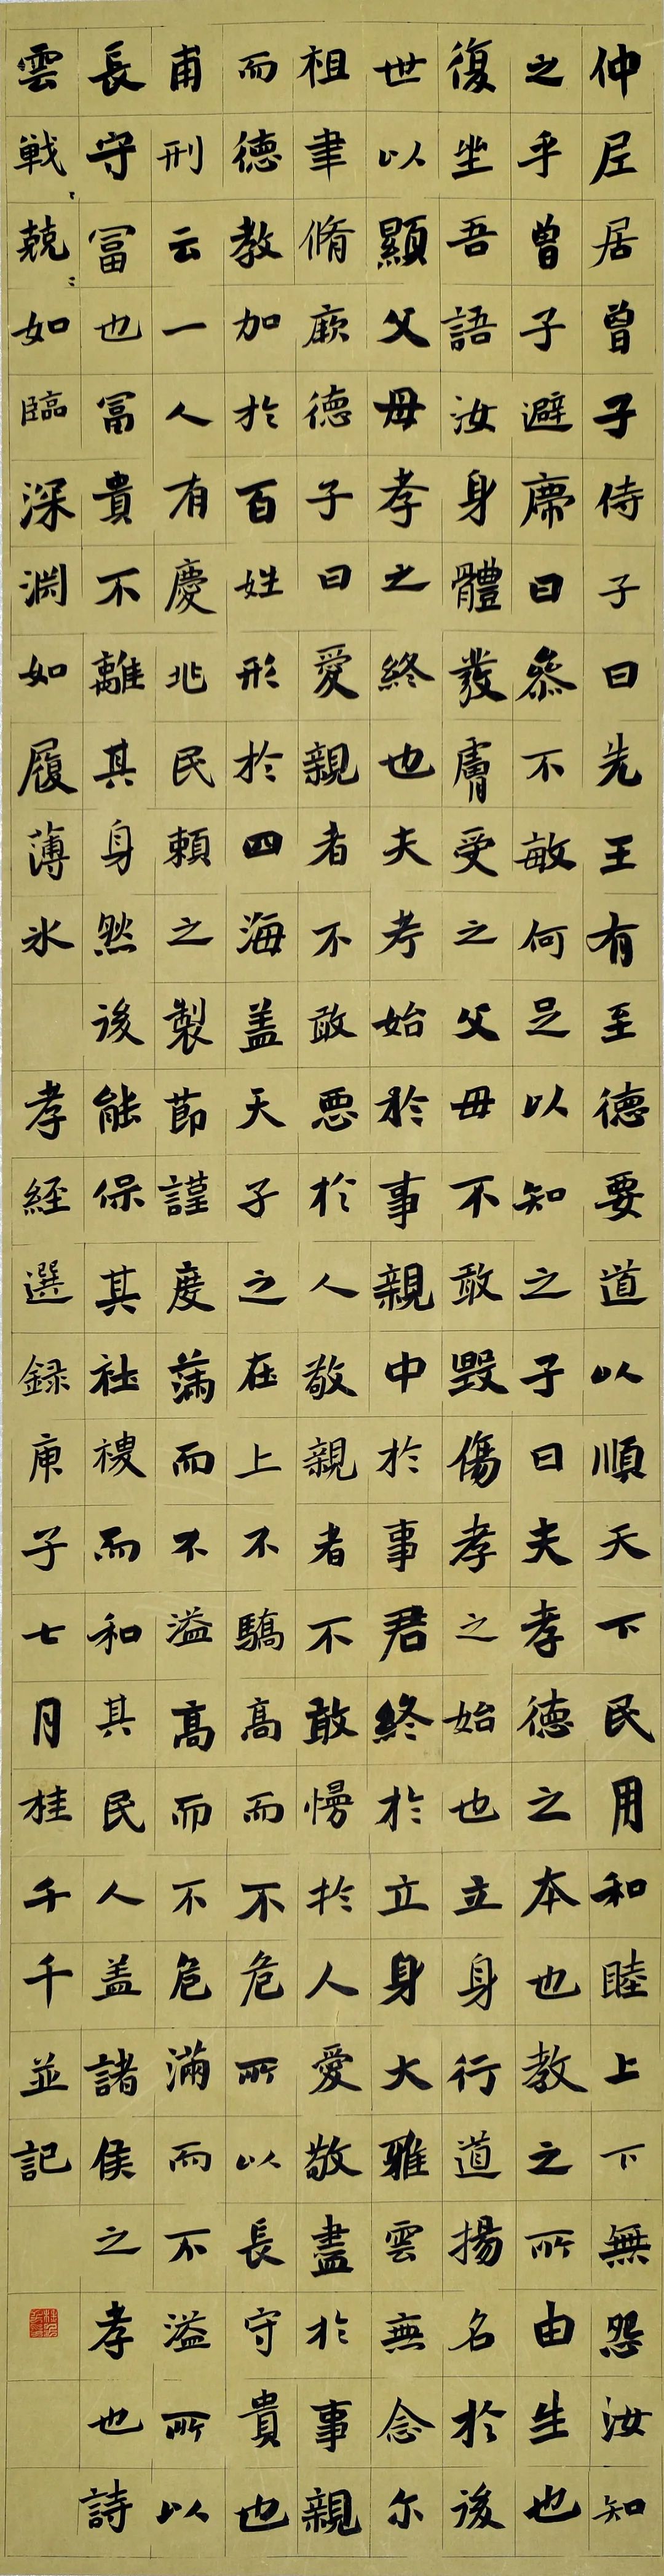 仲尼居曾子侍子曰先王有至德要道以順天下民用和睦上下無怨汝知
之乎曾子避席曰叅不敏何足以知之子曰夫孝德之本也教之所由生也
復坐吾語汝身體髮膚受之父母不敢毀傷孝之始也立身行道揚名於後
世以顯父母孝之終也夫孝始於事親中於事君終於立身大雅雲無念尔
祖聿脩厥德子曰愛親者不敢惡於人敬親者不敢慢於人愛敬盡於事親
而德教加於百姓形於四海盖天子之在上不驕高而不危所以長守貴也
甫刑云一人有慶兆民賴之製節謹度滿而不溢高而不危滿而不溢所以
長守冨也冨貴不離其身然後能保其社稷而和其民人盖諸侯之孝也詩
雲戦〻兢〻如臨深淵如履薄氷　孝経選録庚子七月桂千千並記